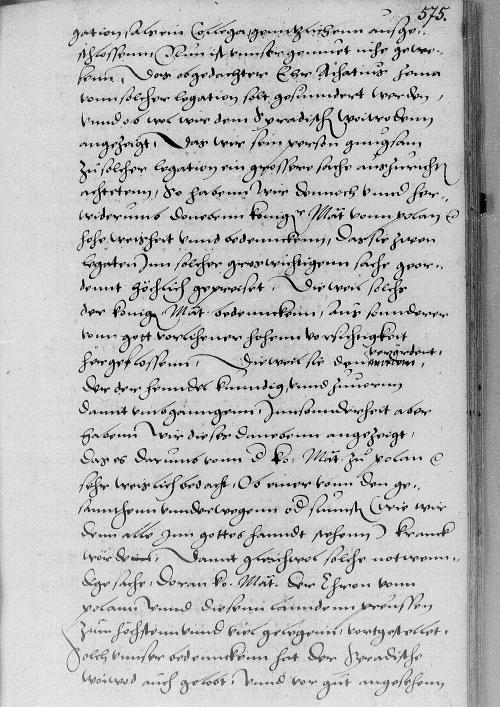 575.
gation, als ein Collega, gentzlichenn ausge-
schlossenn, Nun ist unnser gemuet nihe gewe-
senn, Das obgedachter Ehr Achatius Zema
vonn solcher legation solt gesunndert werden,
unnd ob wol wir dem Syradisch Woiwodenn
angezeigt, Das wir sein person gnugsam
zu solcher legation ein grossere sache auszurichtn
achtetenn, So habenn wir dennoch unnd her-
widerumb donebenn konigr Mat vonn polan
hohe weisheit unnd bedennckenn, Das sie zwen
legaten Inn solcher groswichtigenn sache geor-
dennt höchlich gepreiset, Die weil solche
der konigr Mat bedennckenn, aus sonnderer
vonn gott vorlihener hohenn vorsichtigkeit
hergeflossenn, Die weil sie den vorordent,
der der hendel kunndig, unnd zuvorn
damit umbganngenn, Innsonnderheit aber
habenn wir dieser danebenn angezeigt,
Das es darumb vonn d ko: Mat zu polan
sehr weislich bedacht, Ob einer vonn den ge-
sanntenn unnderwegenn od sunst (wie wir
dann alle Inn gottes hanndt stehenn) kranck
würde, Damit gleichwol solche notwenn-
dige sache, doran ko: Mat. der Chron vonn
polann unnd diesenn lanndenn preussen
zum höchstenn unnd viel gelegenn, vortgestellet.
Solch unnser bedennckenn hat der Syradische
Woiwod auch gelobt, unnd vor gut angesehenn